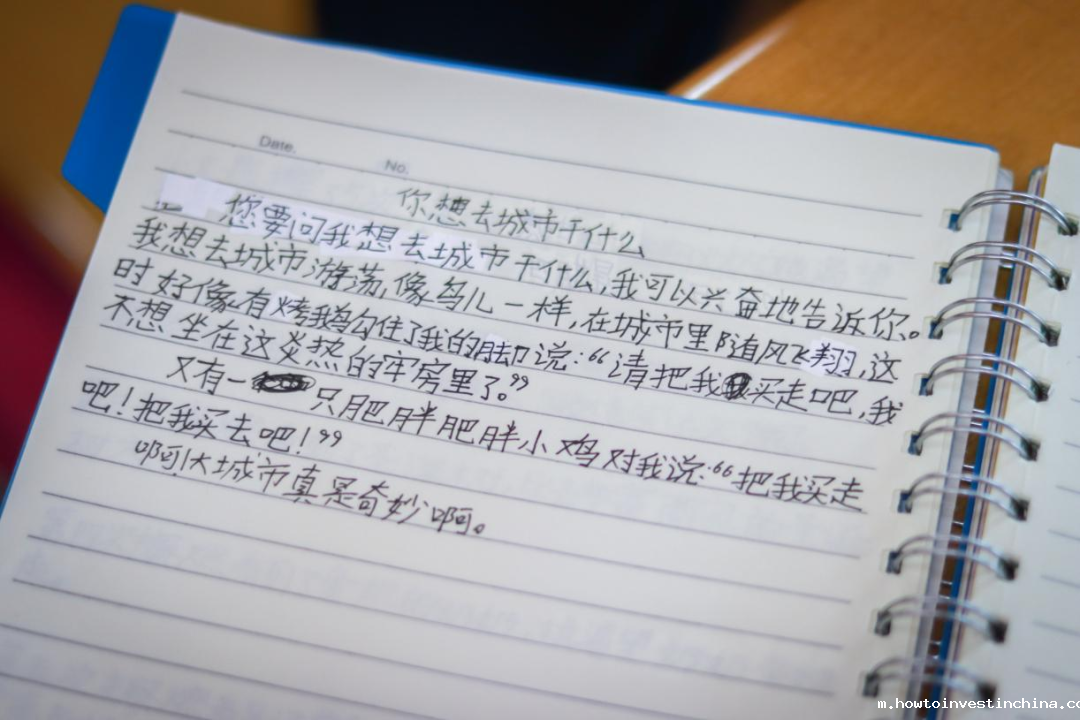 Date.
No.
你想去城市干什么
您要问我想去城市干什么,我可以兴奋地告诉你。
我想去城市游荡,像鸟儿一样,在城市里随风飞翔,这
时好像有烤鹅勾住了我的脚说:“请把我买走吧,我
不想坐在这炎热的牢房里了。”
又有一只肥胖肥胖小鸡对我说:“把我买走
吧!把我买去吧!”
啊!大城市真是奇妙啊。
m.howtoinvestinchina.co